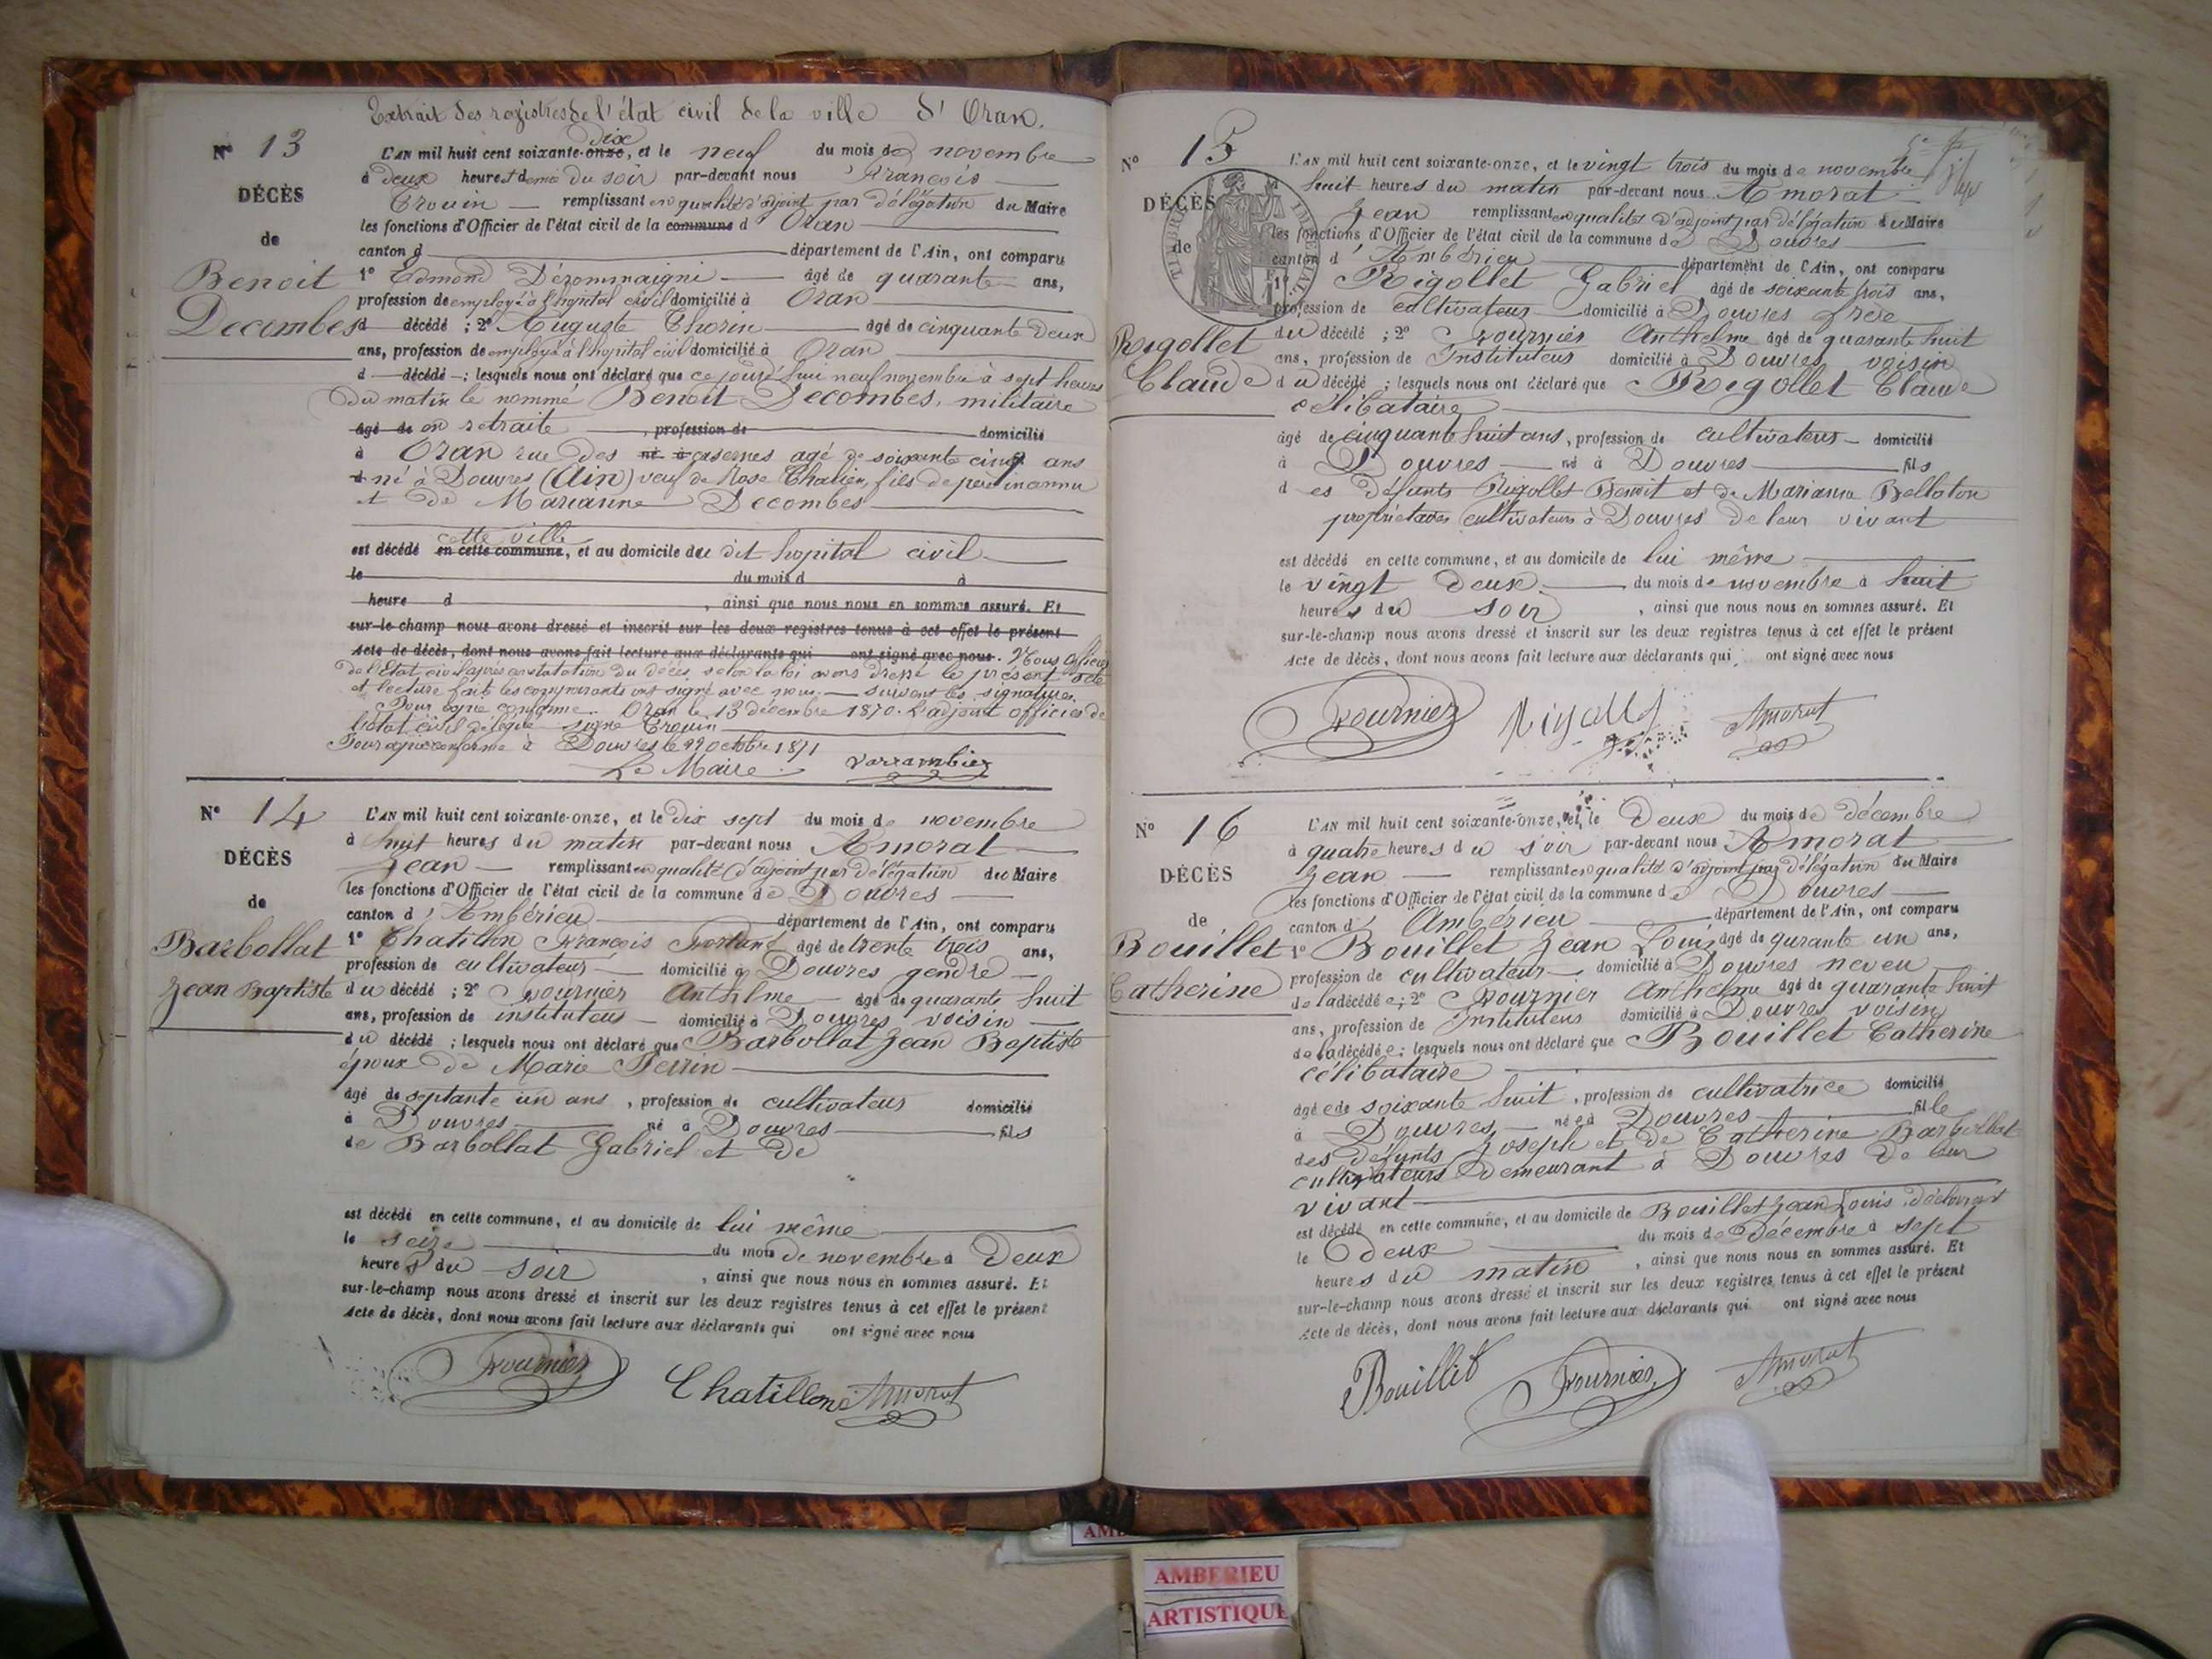 Extrait des registres de l'état civil de la ville d'Oran.
N° 13
DÉCÈS
de
Benoit
Decombes
dix
L'AN mil huit cent soixante-onze, et le neuf du mois de novembre
à deux heures et demie du soir par-devant nous François
Crouin remplissant en qualité d'adjoint par délégation du Maire
les fonctions d'Officier de l'état civil de la commune d' Oran
canton d département de l'Ain, ont comparu
1° Edmond âgé de quarante ans,
profession de employé à l'hopital civil domicilié à Oran
d décédé ; 2° Auguste Thorin âgé de cinquante deux
ans, profession de employé à l'hopital civil domicilié à Oran
d décédé ; lesquels nous ont déclaré que ce jourd'hui neuf novembre à sept heures
du matin le nommé Benoit Decombes, militaire
âgé de en retraite , profession de domicilié
à Oran rue des né à casernes agé de soixante cinq ans
d né à Douvres (Ain) veuf de Rose Chalien, fils de père inconnu
et de Marianne Decombes
cette ville
est décédé en cette commune, et au domicile de dit hopital civil
le du mois d à
heure d , ainsi que nous nous en sommes assuré. Et
sur-le-champ nous avons dressé et inscrit sur les deux registres tenus à cet effet le présent
Acte de décès, dont nous avons fait lecture aux déclarants qui ont signé avec nous. Nous officier
de l'état civil après constatation du décès selon la loi avons dressé le présent acte
et lecture fait les comparants ont signé avec nous. suivent les signatures.
Pour copie conforme. Oran le 13 décembre 1870. L'adjoint officier de
l'état civil délégué signé Crouin
Pour copie conforme à Douvres le 22 octobre 1871
Le Maire Varrambier
N° 14
DÉCÈS
de
Barbollat
Jean Baptiste
L'AN mil huit cent soixante-onze, et le dix sept du mois de novembre
à huit heures du matin par-devant nous Amorat
Jean remplissant en qualité d'adjoint par délégation du Maire
les fonctions d'Officier de l'état civil de la commune de Douvres
canton d'Ambérieu département de l'Ain, ont comparu
1° Chatillon François âgé de trente trois ans,
profession de cultivateur domicilié à Douvres gendre
du décédé ; 2° Fournier Anthelme âgé de quarante huit
ans, profession de instituteur domicilié à Douvres voisin
du décédé ; lesquels nous ont déclaré que Barbollat Jean Baptiste
époux de Marie Perrin
âgé de septante un ans , profession de cultivateur domicilié
à Douvres né à Douvres fils
de Barbollat Gabriel et de
est décédé en cette commune, et au domicile de lui même
le seize du mois de novembre à deux
heures du soir , ainsi que nous nous en sommes assuré. Et
sur-le-champ nous avons dressé et inscrit sur les deux registres tenus à cet effet le présent
Acte de décès, dont nous avons fait lecture aux déclarants qui ont signé avec nous
Fournier Chatillon Amorat
N° 15
DÉCÈS
de
TIMBRE IMPERIAL
Rigollet
Claude
L'AN mil huit cent soixante-onze, et le vingt trois du mois de novembre
huit heures du matin par-devant nous Amorat
Jean remplissant en qualités d'adjoint par délégation du Maire
les fonctions d'Officier de l'état civil de la commune de Douvres
canton d'Ambérieu département de l'Ain, ont comparu
1° Rigollet Gabriel âgé de soixante trois ans,
profession de cultivateur domicilié à Douvres frère
du décédé ; 2° Fournier Anthelme âgé de quarante huit
ans, profession de Instituteur domicilié à Douvres voisin
du décédé ; lesquels nous ont déclaré que Rigollet Claude
célibataire
âgé de cinquante huit ans, profession de cultivateur domicilié
à Douvres né à Douvres fils
des défunts Rigollet Benoit et de Marianne Bellaton
propriétaires cultivateurs à Douvres de leur vivant
est décédé en cette commune, et au domicile de lui même
le vingt deux du mois de novembre à huit
heures du soir , ainsi que nous nous en sommes assuré. Et
sur-le-champ nous avons dressé et inscrit sur les deux registres tenus à cet effet le présent
Acte de décès, dont nous avons fait lecture aux déclarants qui ont signé avec nous
Fournier Amorat
N° 16
DÉCÈS
de
Bouillet
Catherine
L'AN mil huit cent soixante-onze, et le Deux du mois de décembre
à quatre heures du soir par-devant nous Amorat
Jean remplissant en qualité d'adjoint par délégation du Maire
les fonctions d'Officier de l'état civil de la commune de Douvres
canton d'Ambérieu département de l'Ain, ont comparu
1° Bouillet Jean Louis âgé de qurante un ans,
profession de cultivateur domicilié à Douvres neveu
de la décédée ; 2° Fournier Anthelme âgé de quarante huit
ans, profession de Instituteur domicilié à Douvres voisin
de la décédée ; lesquels nous ont déclaré que Bouillet Catherine
célibataire
âgée de soixante huit , profession de cultivatrice domicilié
à Douvres née à Douvres fille
des défunts Joseph et de Catherine Barbollat
cultivateurs demeurant à Douvres de leur
vivant
est décédé en cette commune, et au domicile de Bouillet Jean Louis déclarant
le Deux du mois de Décembre à sept
heures du matin , ainsi que nous nous en sommes assuré. Et
sur-le-champ nous avons dressé et inscrit sur les deux registres tenus à cet effet le présent
Acte de décès, dont nous avons fait lecture aux déclarants qui ont signé avec nous
Bouillet Fournier Amorat
AMBERIEU
ARTISTIQUE